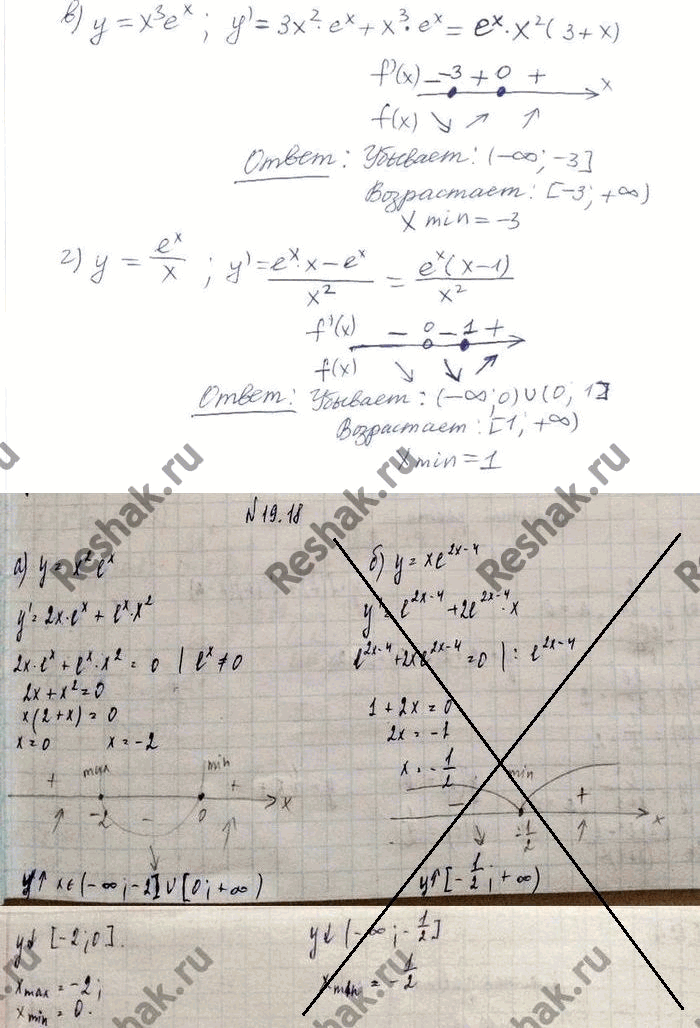 в) y = x³eˣ ; y' = 3x²·eˣ + x³·eˣ = eˣ·x²(3+x)
f'(x) − -3 + 0 + x
f(x) ↘ ↗ ↑
Ответ: Убывает: (-∞; -3]
Возрастает: [-3; +∞)
x min = -3
г) y = eˣ/x ; y' = (eˣ·x − eˣ)/x² = eˣ(x−1)/x²
f'(x) − 0 − 1 +
f(x) ↘ ↘ ↗
Ответ: Убывает: (-∞; 0) ∪ (0; 1]
Возрастает: [1; +∞)
x min = 1
Reshak.ru Reshak.ru Reshak.ru
№19.18
а) y = x²eˣ
y' = 2x·eˣ + eˣ·x²
2x·eˣ + eˣ·x² = 0 | eˣ ≠ 0
2x + x² = 0
x(2+x) = 0
x = 0 x = -2
+ max − min + x
↑ -2 ↘ 0 ↑
y↑ x∈(-∞; -2] ∪ [0; +∞)
y↓ [-2; 0].
x max = -2;
x min = 0.
б) y = xe²ˣ⁻⁴
y' = e²ˣ⁻⁴ + 2e²ˣ⁻⁴·x
e²ˣ⁻⁴ + 2xe²ˣ⁻⁴ = 0 | : e²ˣ⁻⁴
1 + 2x = 0
2x = -1
x = -1/2
− min + x
↘ -1/2 ↑
y↑ [-1/2; +∞)
y↓ (-∞; -1/2]
x min = -1/2
Reshak.ru Reshak.ru Reshak.ru